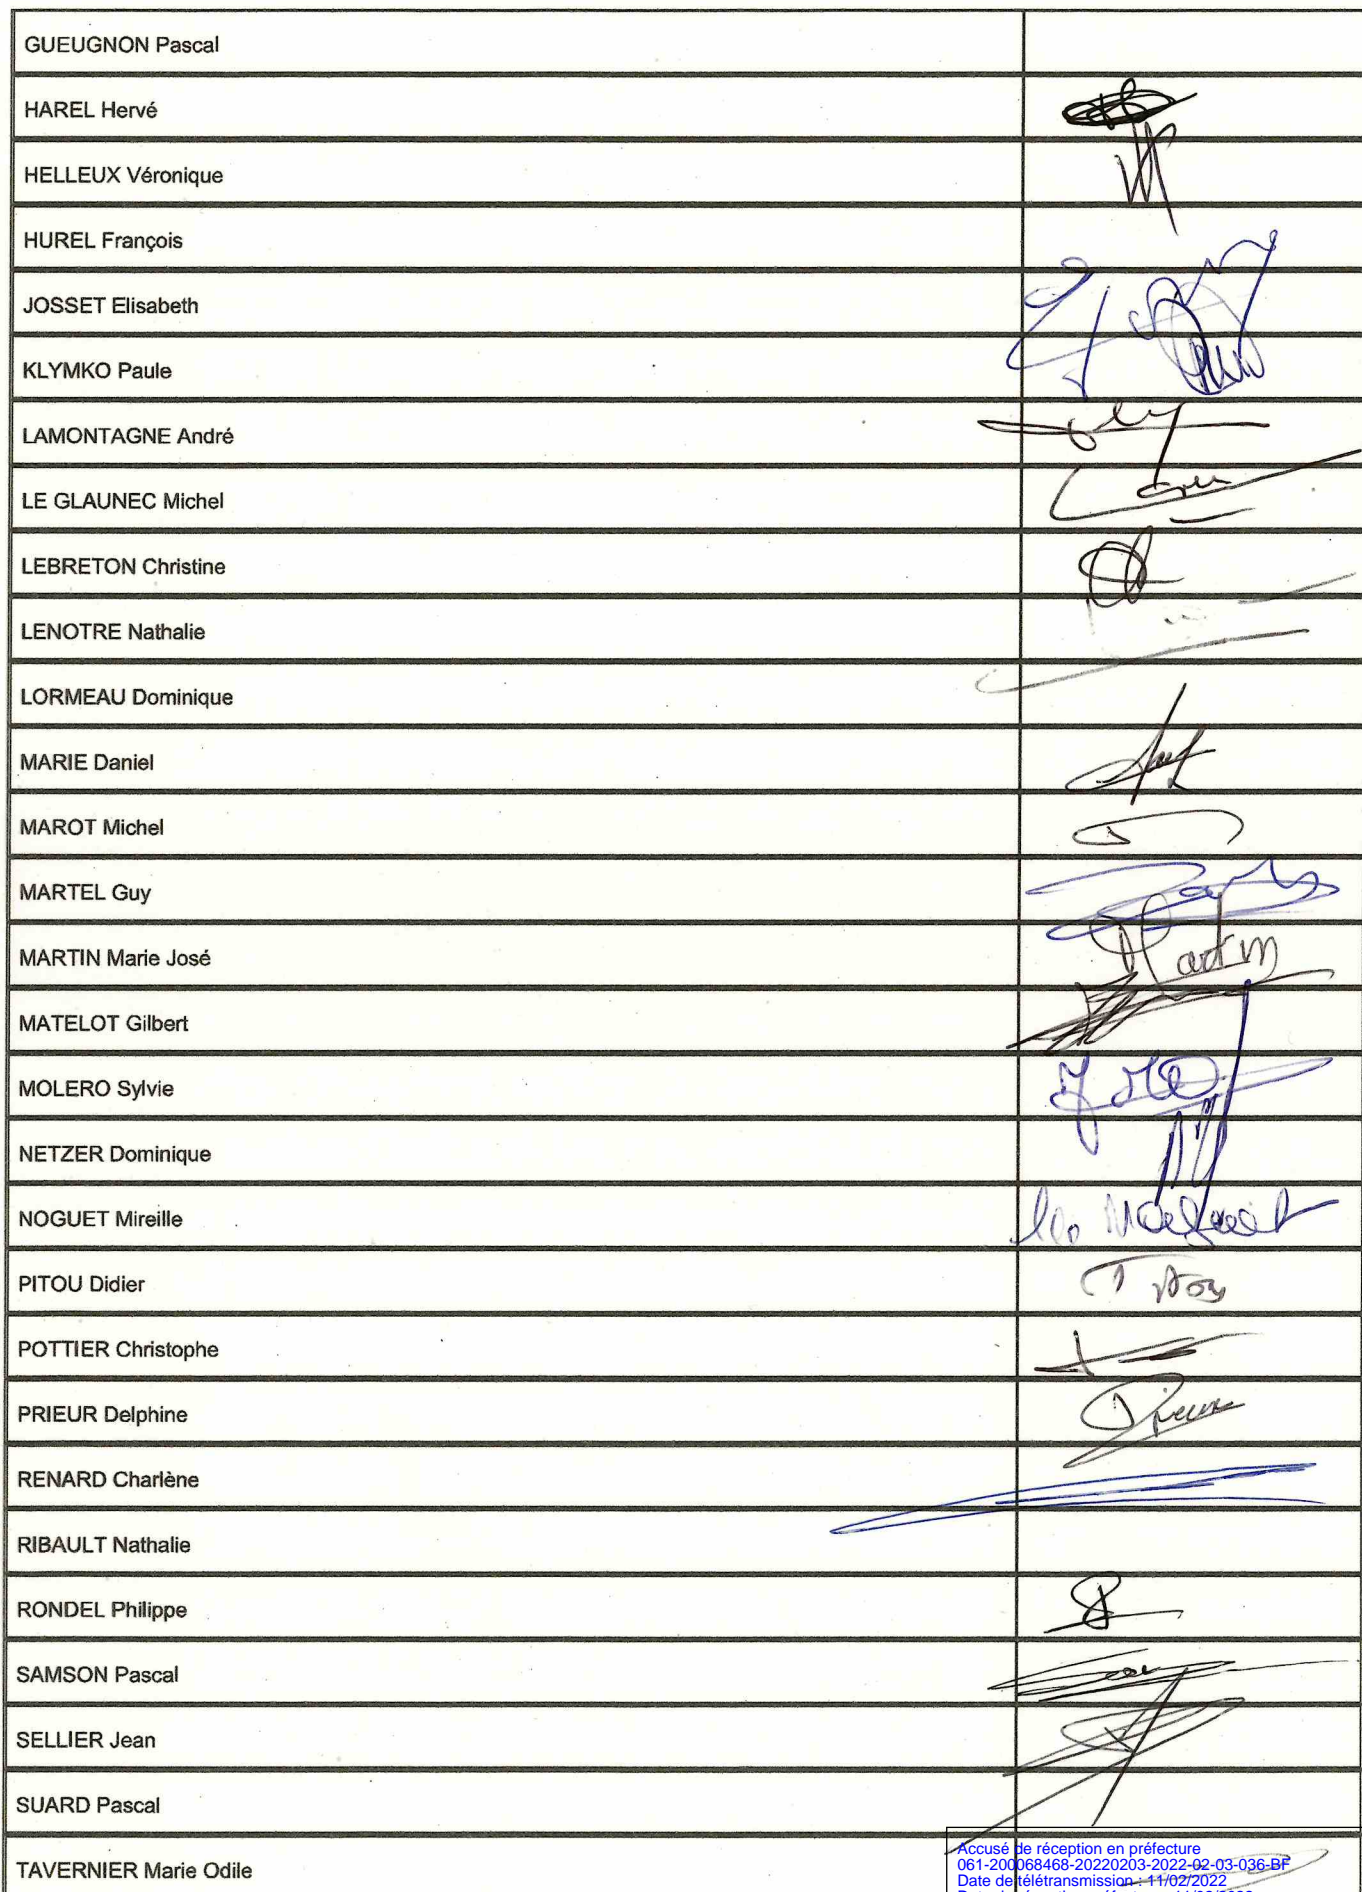 GUEUGNON Pascal
HAREL Hervé
HELLEUX Véronique
HUREL François
JOSSET Elisabeth
KLYMKO Paule
LAMONTAGNE André
LE GLAUNEC Michel
LEBRETON Christine
LENOTRE Nathalie
LORMEAU Dominique
MARIE Daniel
MAROT Michel
MARTEL Guy
MARTIN Marie José
Martin
MATELOT Gilbert
MOLERO Sylvie
NETZER Dominique
NOGUET Mireille
PITOU Didier
POTTIER Christophe
PRIEUR Delphine
Prieur
RENARD Charlène
RIBAULT Nathalie
RONDEL Philippe
SAMSON Pascal
SELLIER Jean
SUARD Pascal
TAVERNIER Marie Odile
Accusé de réception en préfecture
061-200068468-20220203-2022-02-03-036-BF
Date de télétransmission : 11/02/2022